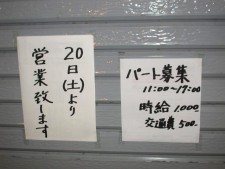 20日(土)より
営業致します
パート募集
11:00~17:00
時給 1,000
交通費 500-